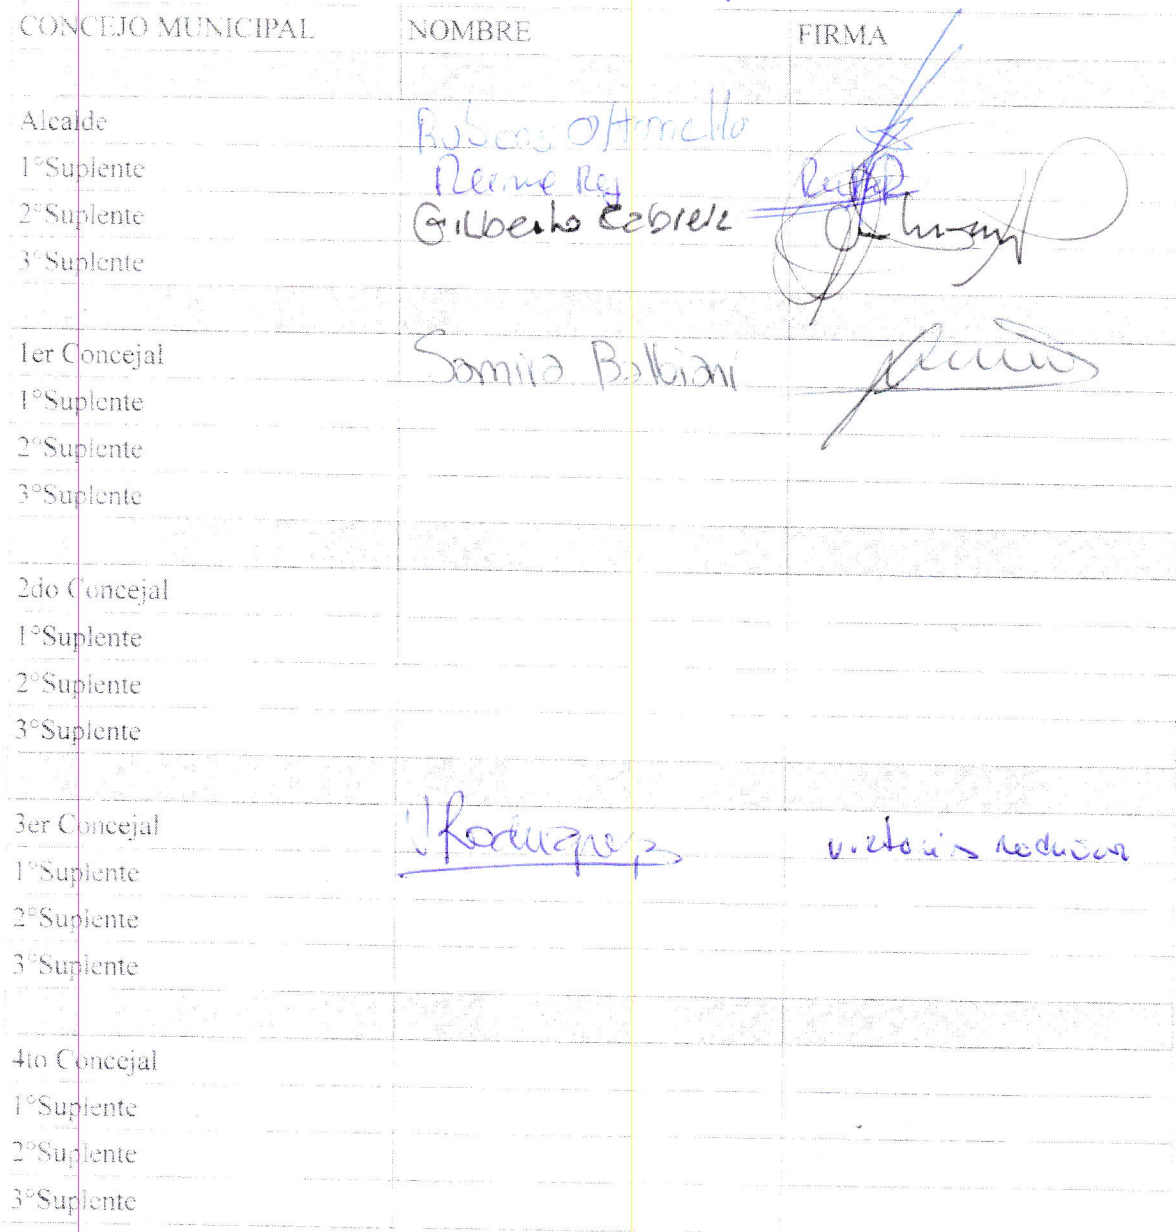 CONCEJO MUNICIPAL NOMBRE FIRMA
Alcalde Rubens Ottonello
1°Suplente Rey
2°Suplente Gilberto Cabrera
3°Suplente
1er Concejal Samira Balbiani
1°Suplente
2°Suplente
3°Suplente
2do Concejal
1°Suplente
2°Suplente
3°Suplente
3er Concejal VRodriguez Victoria
1°Suplente
2°Suplente
3°Suplente
4to Concejal
1°Suplente
2°Suplente
3°Suplente